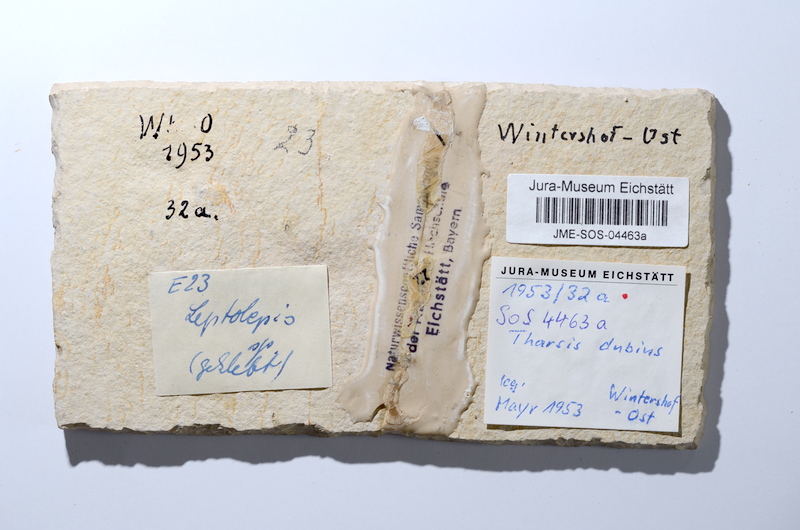 W. O
1953
23
32a.
E23
Leptolepis
(geklebt)
Naturwissenschaftliche Sam
der Hochschule
Eichstätt, Bayern
Wintershof-Ost
Jura-Museum Eichstätt
JME-SOS-04463a
JURA-MUSEUM EICHSTÄTT
1953/32a
SOS 4463a
Tharsis dubius
leg.
Mayr 1953
Wintershof
-Ost